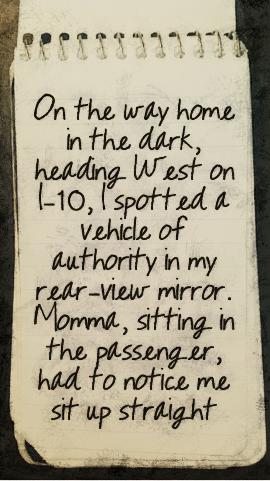 On the way home
in the dark,
heading West on
I-10, I spotted a
vehicle of
authority in my
rear-view mirror.
Momma, sitting in
the passenger,
had to notice me
sit up straight